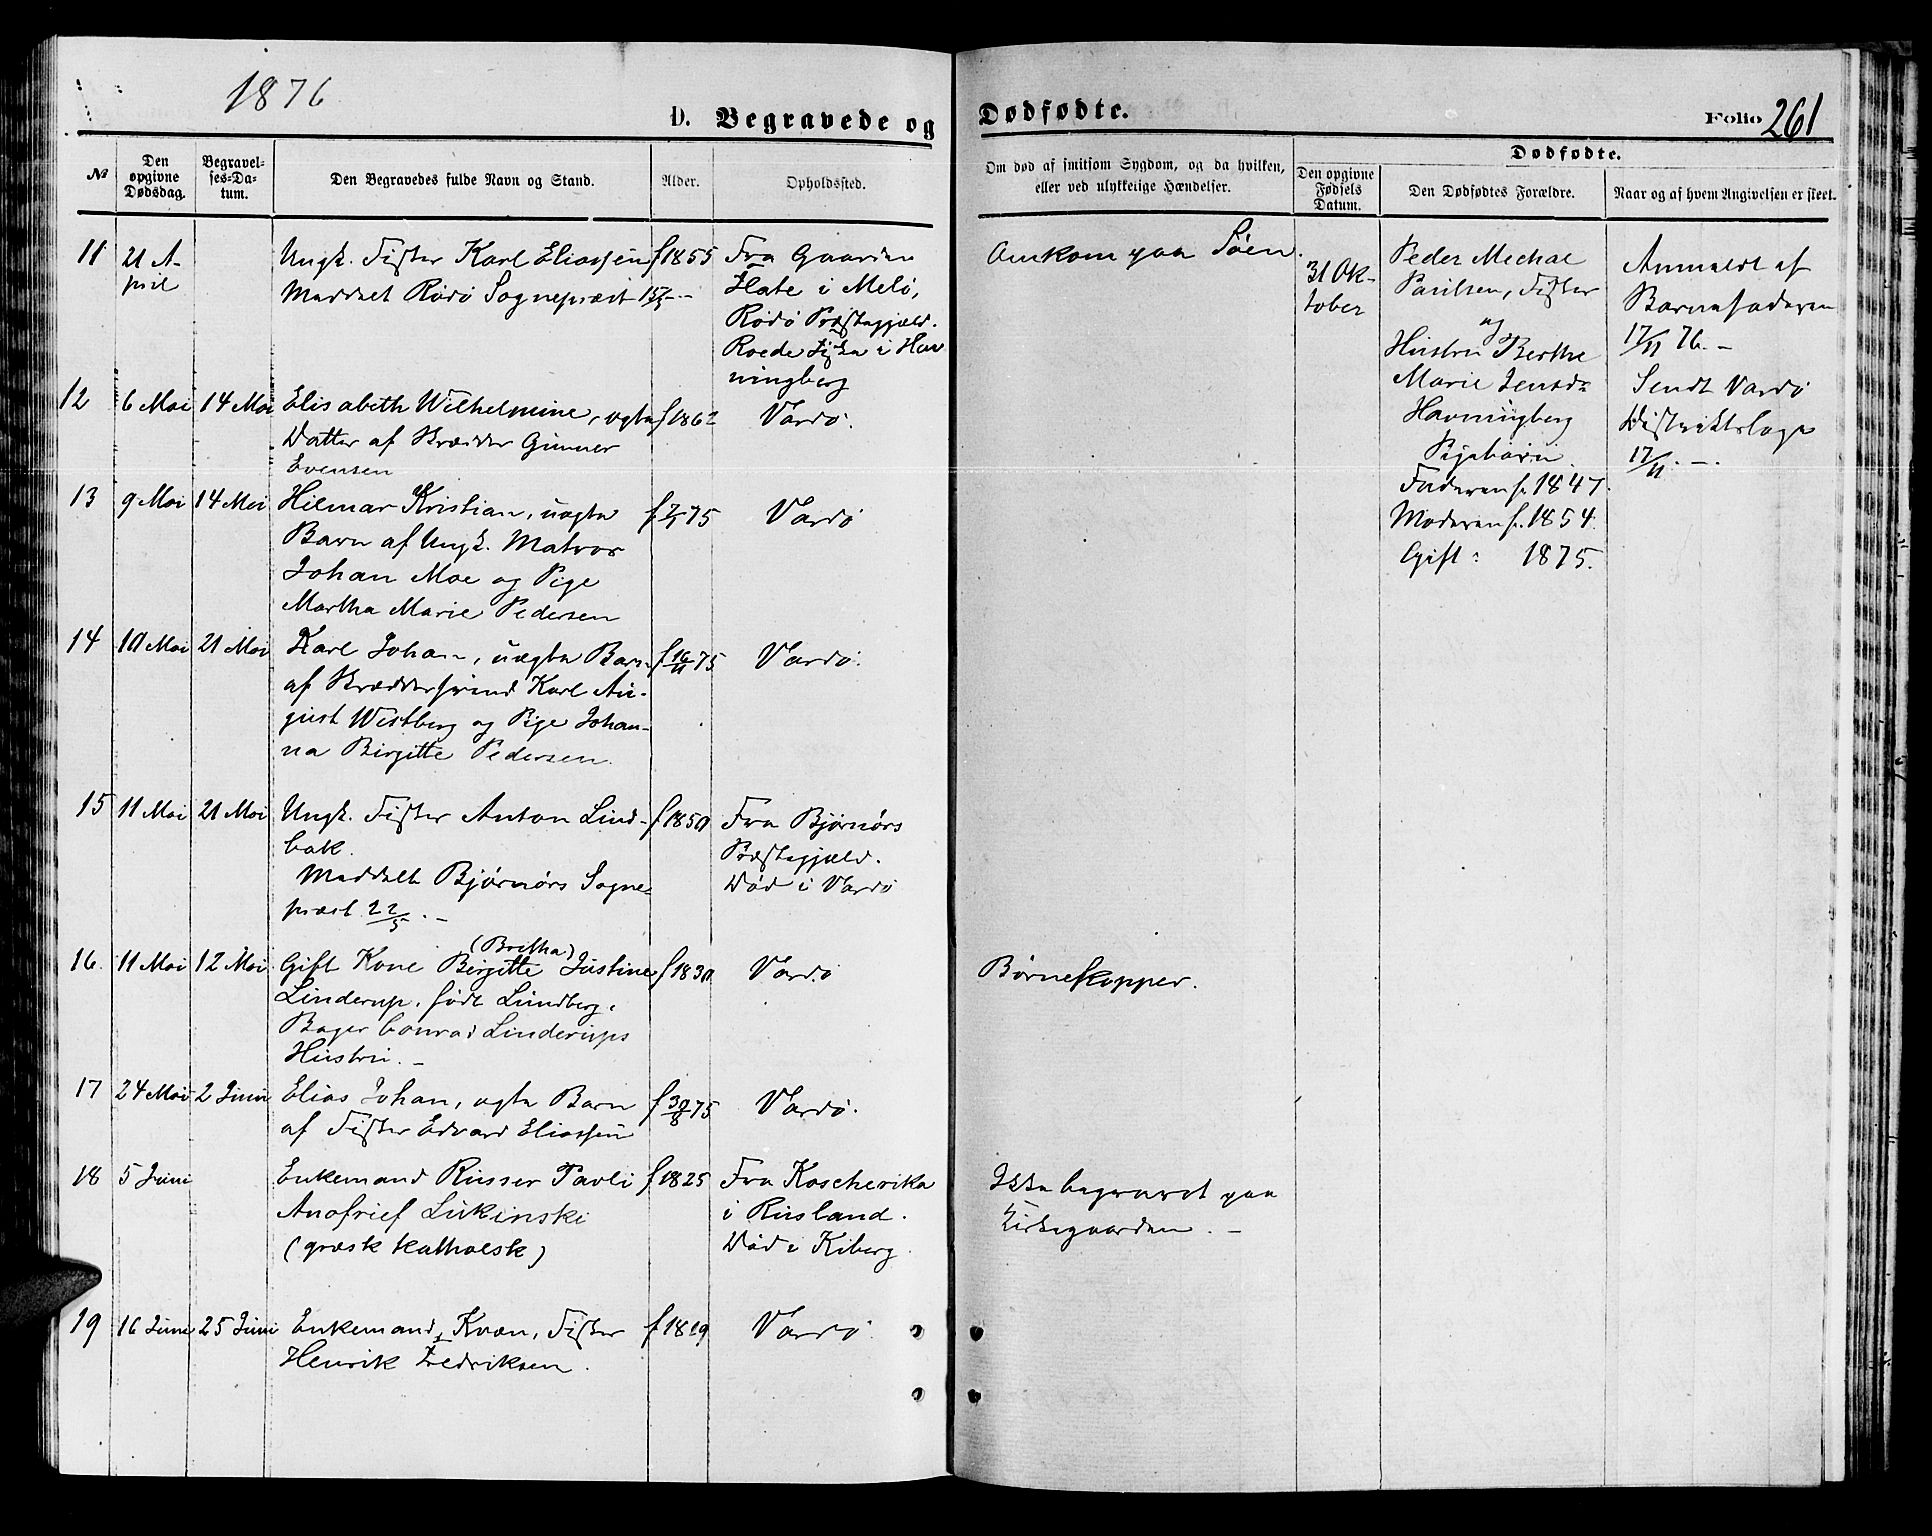 1876
D. Begravede og Dødfødte.
Folio 261
№
Den opgivne Dødsdag.
Begravelses-Datum.
Den Begravedes fulde Navn og Stand.
Alder.
Opholdssted.
Om død af smitsom Sygdom, og da hvilken, eller ved ulykkelige Hændelser.
Dødfødte.
Den opgivne Fødsels Datum.
Den Dødfødtes Forældre.
Naar og af hvem Angivelsen er skeet.
11 21 A-
pril
Ungk. Fisker Karl Eliassen f 1855
Meddelt Rødø Sognepræst 15/7 --
Fra Gaarden
i Melø,
Rødø Præstegjæld.
Roede Fiske i Hav
ningberg
Omkom paa Søen.
12 6 Mai 14 Mai Elisabeth Wilhelmine, ægte f 1862 Vardø.
Datter af Skræder Gunner
Evensen
13 9 Mai 14 Mai Hilmar Kristian, uægte f 75 Vardø
Barn af Ungk. Matros
Johan Moe og Pige
Martha Marie Pedersen
14 10 Mai 21 Mai Karl Johan, uægte Barn f 16/11 75 Vardø.
af Skræddersvend Karl Au-
gust Westberg og Pige Johan-
na Birgitte Pedersen.
15 11 Mai 21 Mai Ungk. Fisker Anton Lind- f 1850
bak.
Meddelt Bjørnørs Sogne-
præst 22/5. -
Fra Bjørnørs
Præstegjæld.
Død i Vardø
16. 11 Mai 12 Mai Gift Kone Birgitte (Britha) Justine f 1830 Vardø
Linderup, født Lundberg,
Bager Conrad Linderups
Hustru. -
Børnekopper.
17 24 Mai 2 Juni Elias Johan, ægte Barn f 30/8 75 Vardø.
af Fisker Edvard Eliassen
18 5 Juni Enkemand Russer Pavli f 1825
Anofrief Lukinski
(græsk katholsk)
Fra Koscherika
i Rusland.
Død i Kiberg.
Ikke begravet paa
Kirkegaarden. -
19 16 Juni 25 Juni Enkemand, Kvæn, Fisker f 1819 Vardø.
Henrik Fredriksen.
31 Ok-
tober
Peder Mechal
Paulsen, Fisker
og
Hustru Berthe
Marie Jensdr
Havningberg
Pigebarn.
Faderen f. 1847.
Moderen f. 1854.
Gift: 1875.
Anmeldt af
Barnefaderen
17/11 76. -
Sendt Vardø
Distriktslæge
17/11. -.